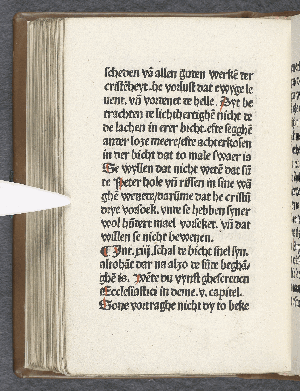 scheden vā allen guten werkē der
cristēheyt. he vorlust dat ewyge le
uent. vñ vordenet de helle. Syt be
trachten de lichtuerdighē nicht de
de lachen in erer bicht. efte segghē
ander loze meere/efte achterkosen
in der bicht dat to male swaer is
Se wyllen dat nicht wetē dat sū
te Peter hole vñ rissen in sine wā
ghē weende/darūme dat he cristū
drye vorsoek. vnde se hebben syner
wol hūdert mael vorsekē. vñ dat
willen se nicht bewenen.
Int. xiij. schal de bicht snel syn.
alzohāt dar na alzo de sūde beghā/
ghē is. Wēte du vynst ghescreuen
Ecclesiastici in deme .v. capitel.
Sone vortraghe nicht dy to beke